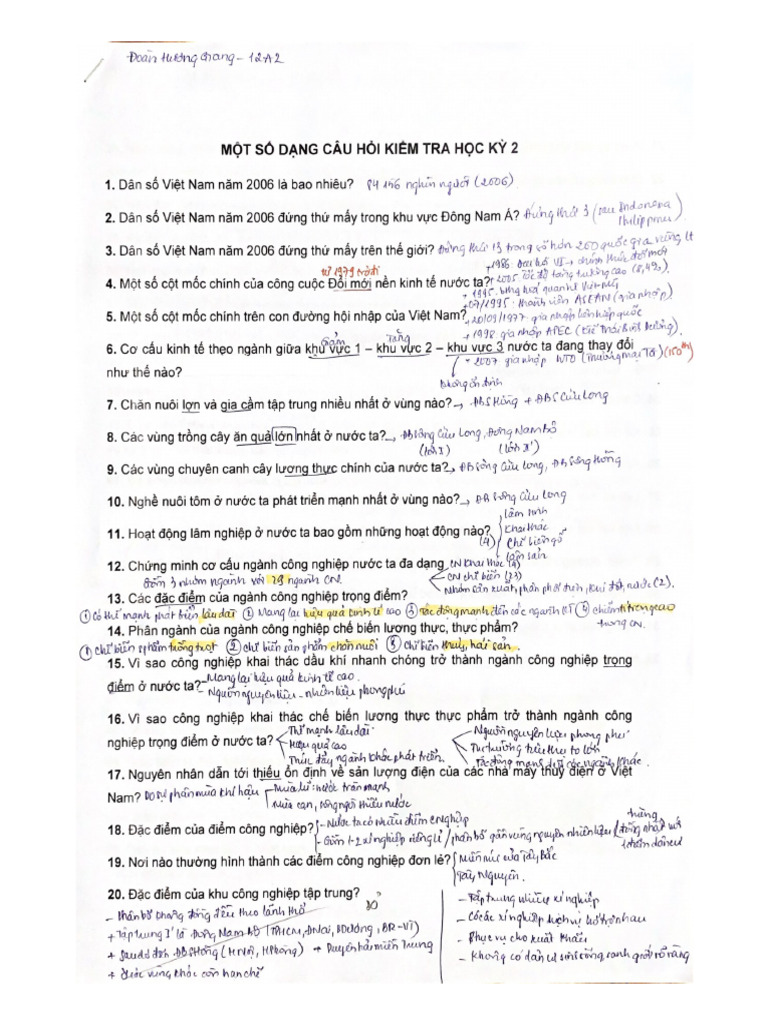 Đoàn Hương Giang - 12A2
MỘT SỐ DẠNG CÂU HỎI KIỂM TRA HỌC KỲ 2
1. Dân số Việt Nam năm 2006 là bao nhiêu? 84 156 nghìn người (2006)
2. Dân số Việt Nam năm 2006 đứng thứ mấy trong khu vực Đông Nam Á? Đứng thứ 3 (sau Indonexia
Philippines)
3. Dân số Việt Nam năm 2006 đứng thứ mấy trên thế giới? Đứng thứ 13 trong số hơn 200 quốc gia vùng lt
từ 1979 trở đi
+ 1986: Đại hội VI → chính thức đổi mới
4. Một số cột mốc chính của công cuộc Đổi mới nền kinh tế nước ta? 2005 tốc độ tăng trưởng cao (8,4%)
+ 1995: bình thường quan hệ Việt - Mỹ
+ 07/1995: thành viên ASEAN (gia nhập)
5. Một số cột mốc chính trên con đường hội nhập của Việt Nam? + 20/09/1977: gia nhập Liên hợp quốc
+ 1998 gia nhập APEC
giảm tăng
6. Cơ cấu kinh tế theo ngành giữa khu vực 1 – khu vực 2 – khu vực 3 nước ta đang thay đổi
+ 2007 gia nhập WTO (thương mại TG) (150th)
như thế nào?
không ổn định
7. Chăn nuôi lợn và gia cầm tập trung nhiều nhất ở vùng nào? → ĐBS Hồng + ĐBS Cửu Long
8. Các vùng trồng cây ăn quả lớn nhất ở nước ta? → ĐB sông Cửu Long, Đông Nam Bộ
(lớn I) (lớn II)
9. Các vùng chuyên canh cây lương thực chính của nước ta? → ĐB sông Cửu Long, ĐB sông Hồng
10. Nghề nuôi tôm ở nước ta phát triển mạnh nhất ở vùng nào? → ĐB sông Cửu Long
11. Hoạt động lâm nghiệp ở nước ta bao gồm những hoạt động nào? (4)
lâm sinh
khai thác
chế biến gỗ
lâm sản
12. Chứng minh cơ cấu ngành công nghiệp nước ta đa dạng CN khai thác (4)
Gồm 3 nhóm ngành với 29 ngành CN.
CN chế biến (23)
Nhóm sản xuất, phân phối điện, khí đốt, nước (2).
13. Các đặc điểm của ngành công nghiệp trọng điểm?
① Có thế mạnh phát triển lâu dài ② Mang lại hiệu quả kinh tế cao ③ Tác động mạnh đến các ngành KT ④ chiếm tỉ trọng cao
trong CN.
14. Phân ngành của ngành công nghiệp chế biến lương thực, thực phẩm?
① Chế biến s/phẩm trồng trọt ② Chế biến sản phẩm chăn nuôi ③ Chế biến thuỷ, hải sản.
15. Vì sao công nghiệp khai thác dầu khí nhanh chóng trở thành ngành công nghiệp trọng
điểm ở nước ta? - Mang lại hiệu quả kinh tế cao.
- Nguồn nguyên liệu - nhiên liệu phong phú
16. Vì sao công nghiệp khai thác chế biến lương thực thực phẩm trở thành ngành công
nghiệp trọng điểm ở nước ta?
Thế mạnh lâu dài
Hiệu quả cao
Thúc đẩy ngành khác phát triển.
Nguồn nguyên liệu phong phú
Thị trường tiêu thụ to lớn
Tác động mạnh đến các ngành khác.
17. Nguyên nhân dẫn tới thiếu ổn định về sản lượng điện của các nhà máy thuỷ điện ở Việt
Nam? Do sự phân mùa khí hậu
Mùa lũ: nước tràn mạnh
Mùa cạn, sông ngòi thiếu nước
18. Đặc điểm của điểm công nghiệp?
- Nước ta có nhiều điểm c nghiệp
- Gồm 1-2 xí nghiệp riêng lẻ / phân bố gần vùng nguyên nhiên liệu
19. Nơi nào thường hình thành các điểm công nghiệp đơn lẻ?
Miền núi của Tây Bắc
Tây Nguyên.
20. Đặc điểm của khu công nghiệp tập trung?
- Phân bố không đồng đều theo lãnh thổ
+ Tập trung I là Đông Nam Bộ (TPHCM, ĐNai, BDương, BR-VT)
+ Sau đó đến ĐBSHồng (HNội, HPhòng) → Duyên hải miền Trung
+ Các vùng khác còn hạn chế
- Tập trung nhiều xí nghiệp
- Có các xí nghiệp dịch vụ hỗ trợ nhau
- Phục vụ cho xuất khẩu
- Không có dân cư sinh sống, ranh giới rõ ràng